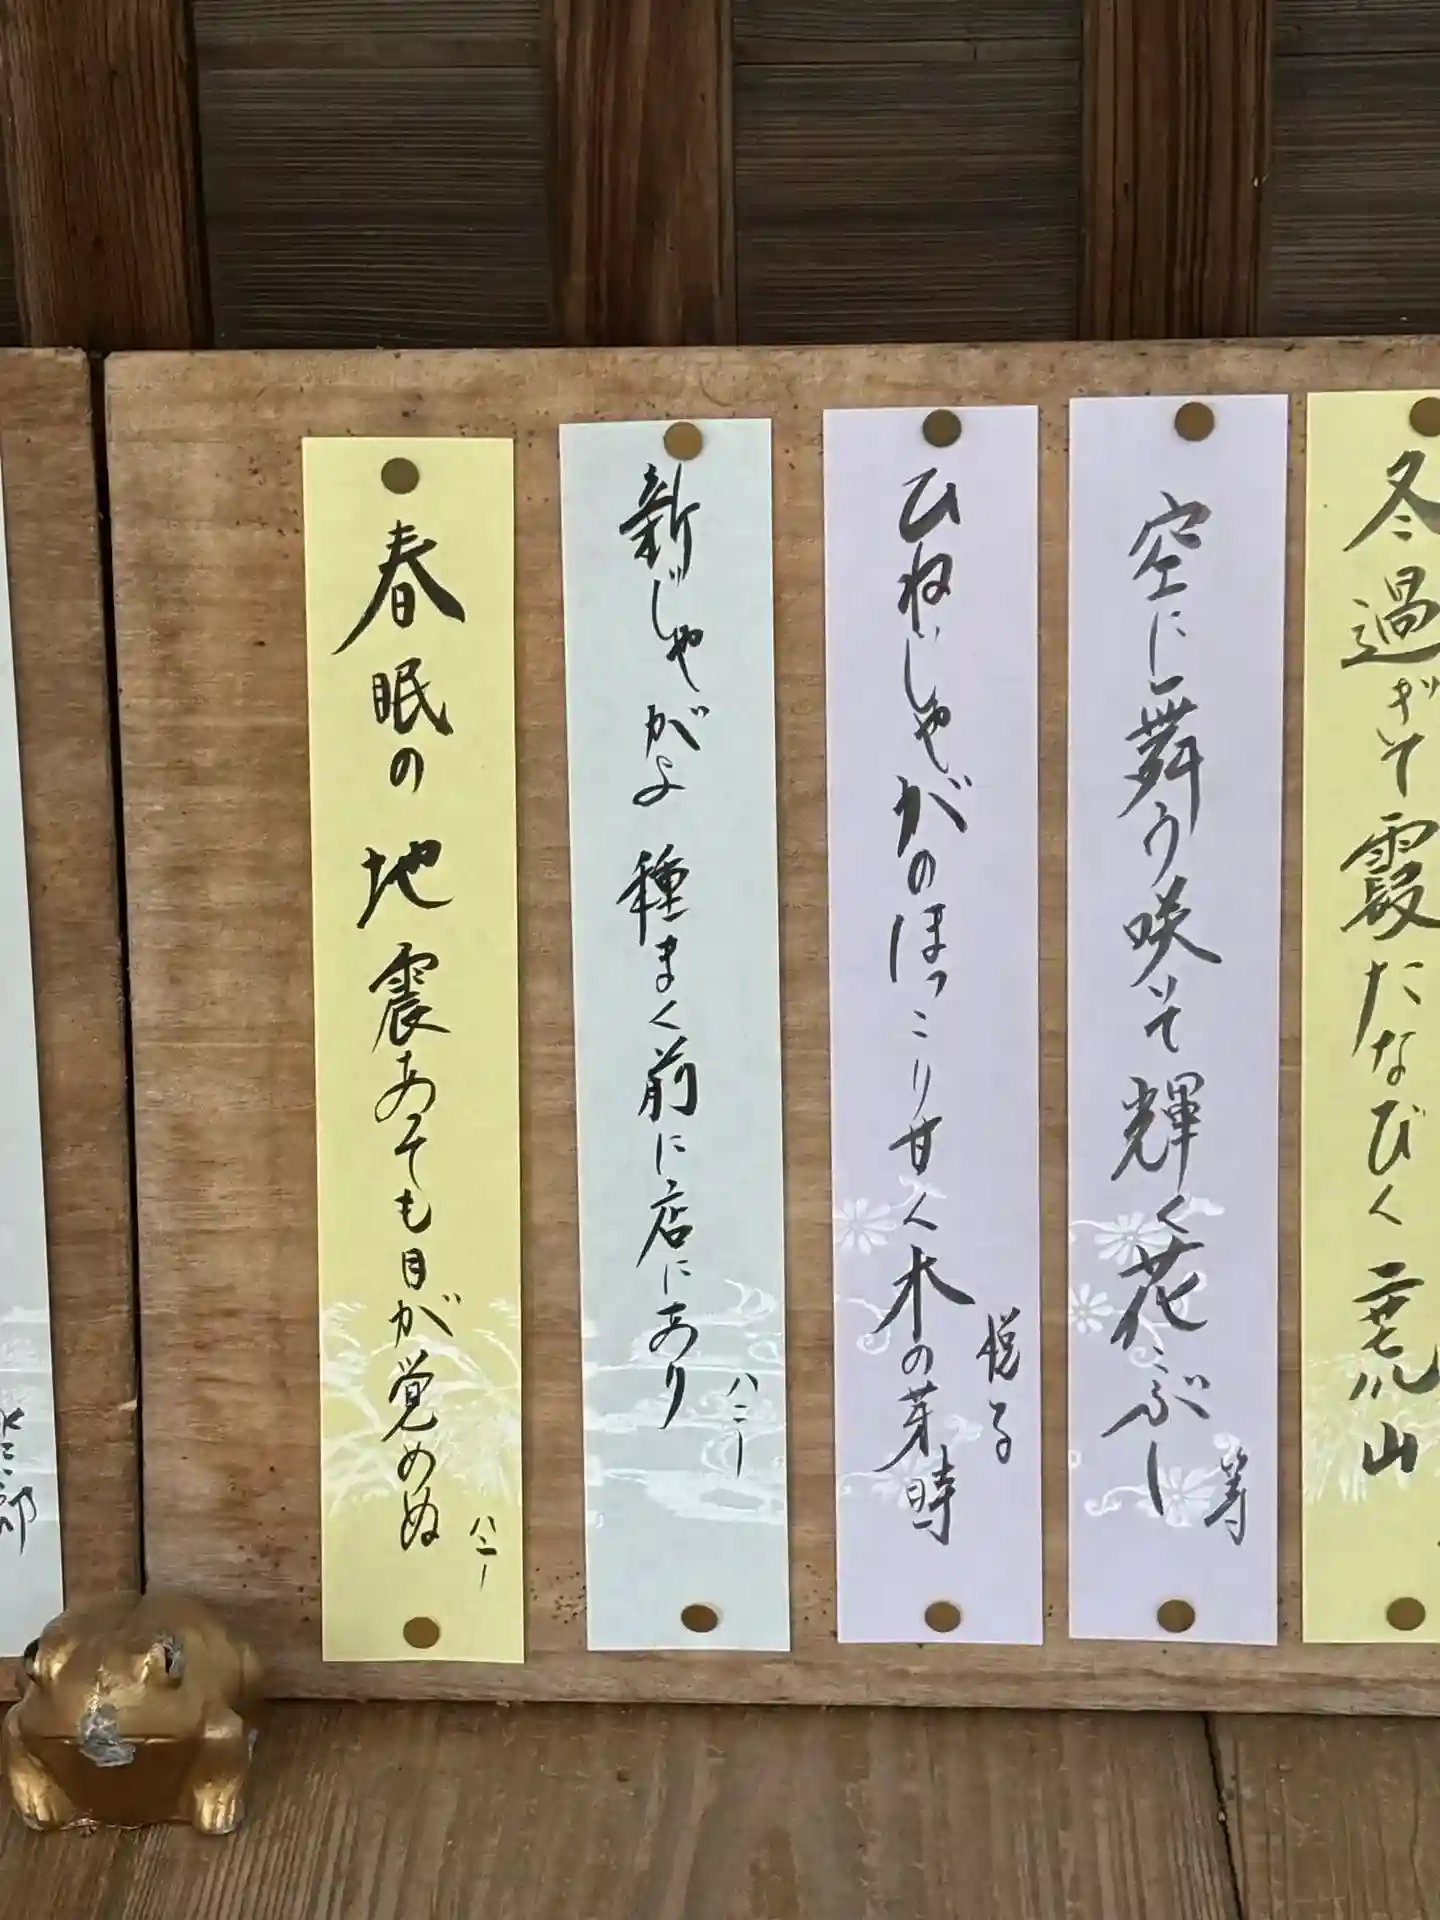 冬過ぎて霞たなびく荒山
空に舞う咲いて輝く花こぶし
等
ひねじゃがのほっこり甘く木の芽時
悦子
新じゃがよ種まく前に店にあり
ハニー
春眠の地震あっても目が覚めぬ
ハニー
郎